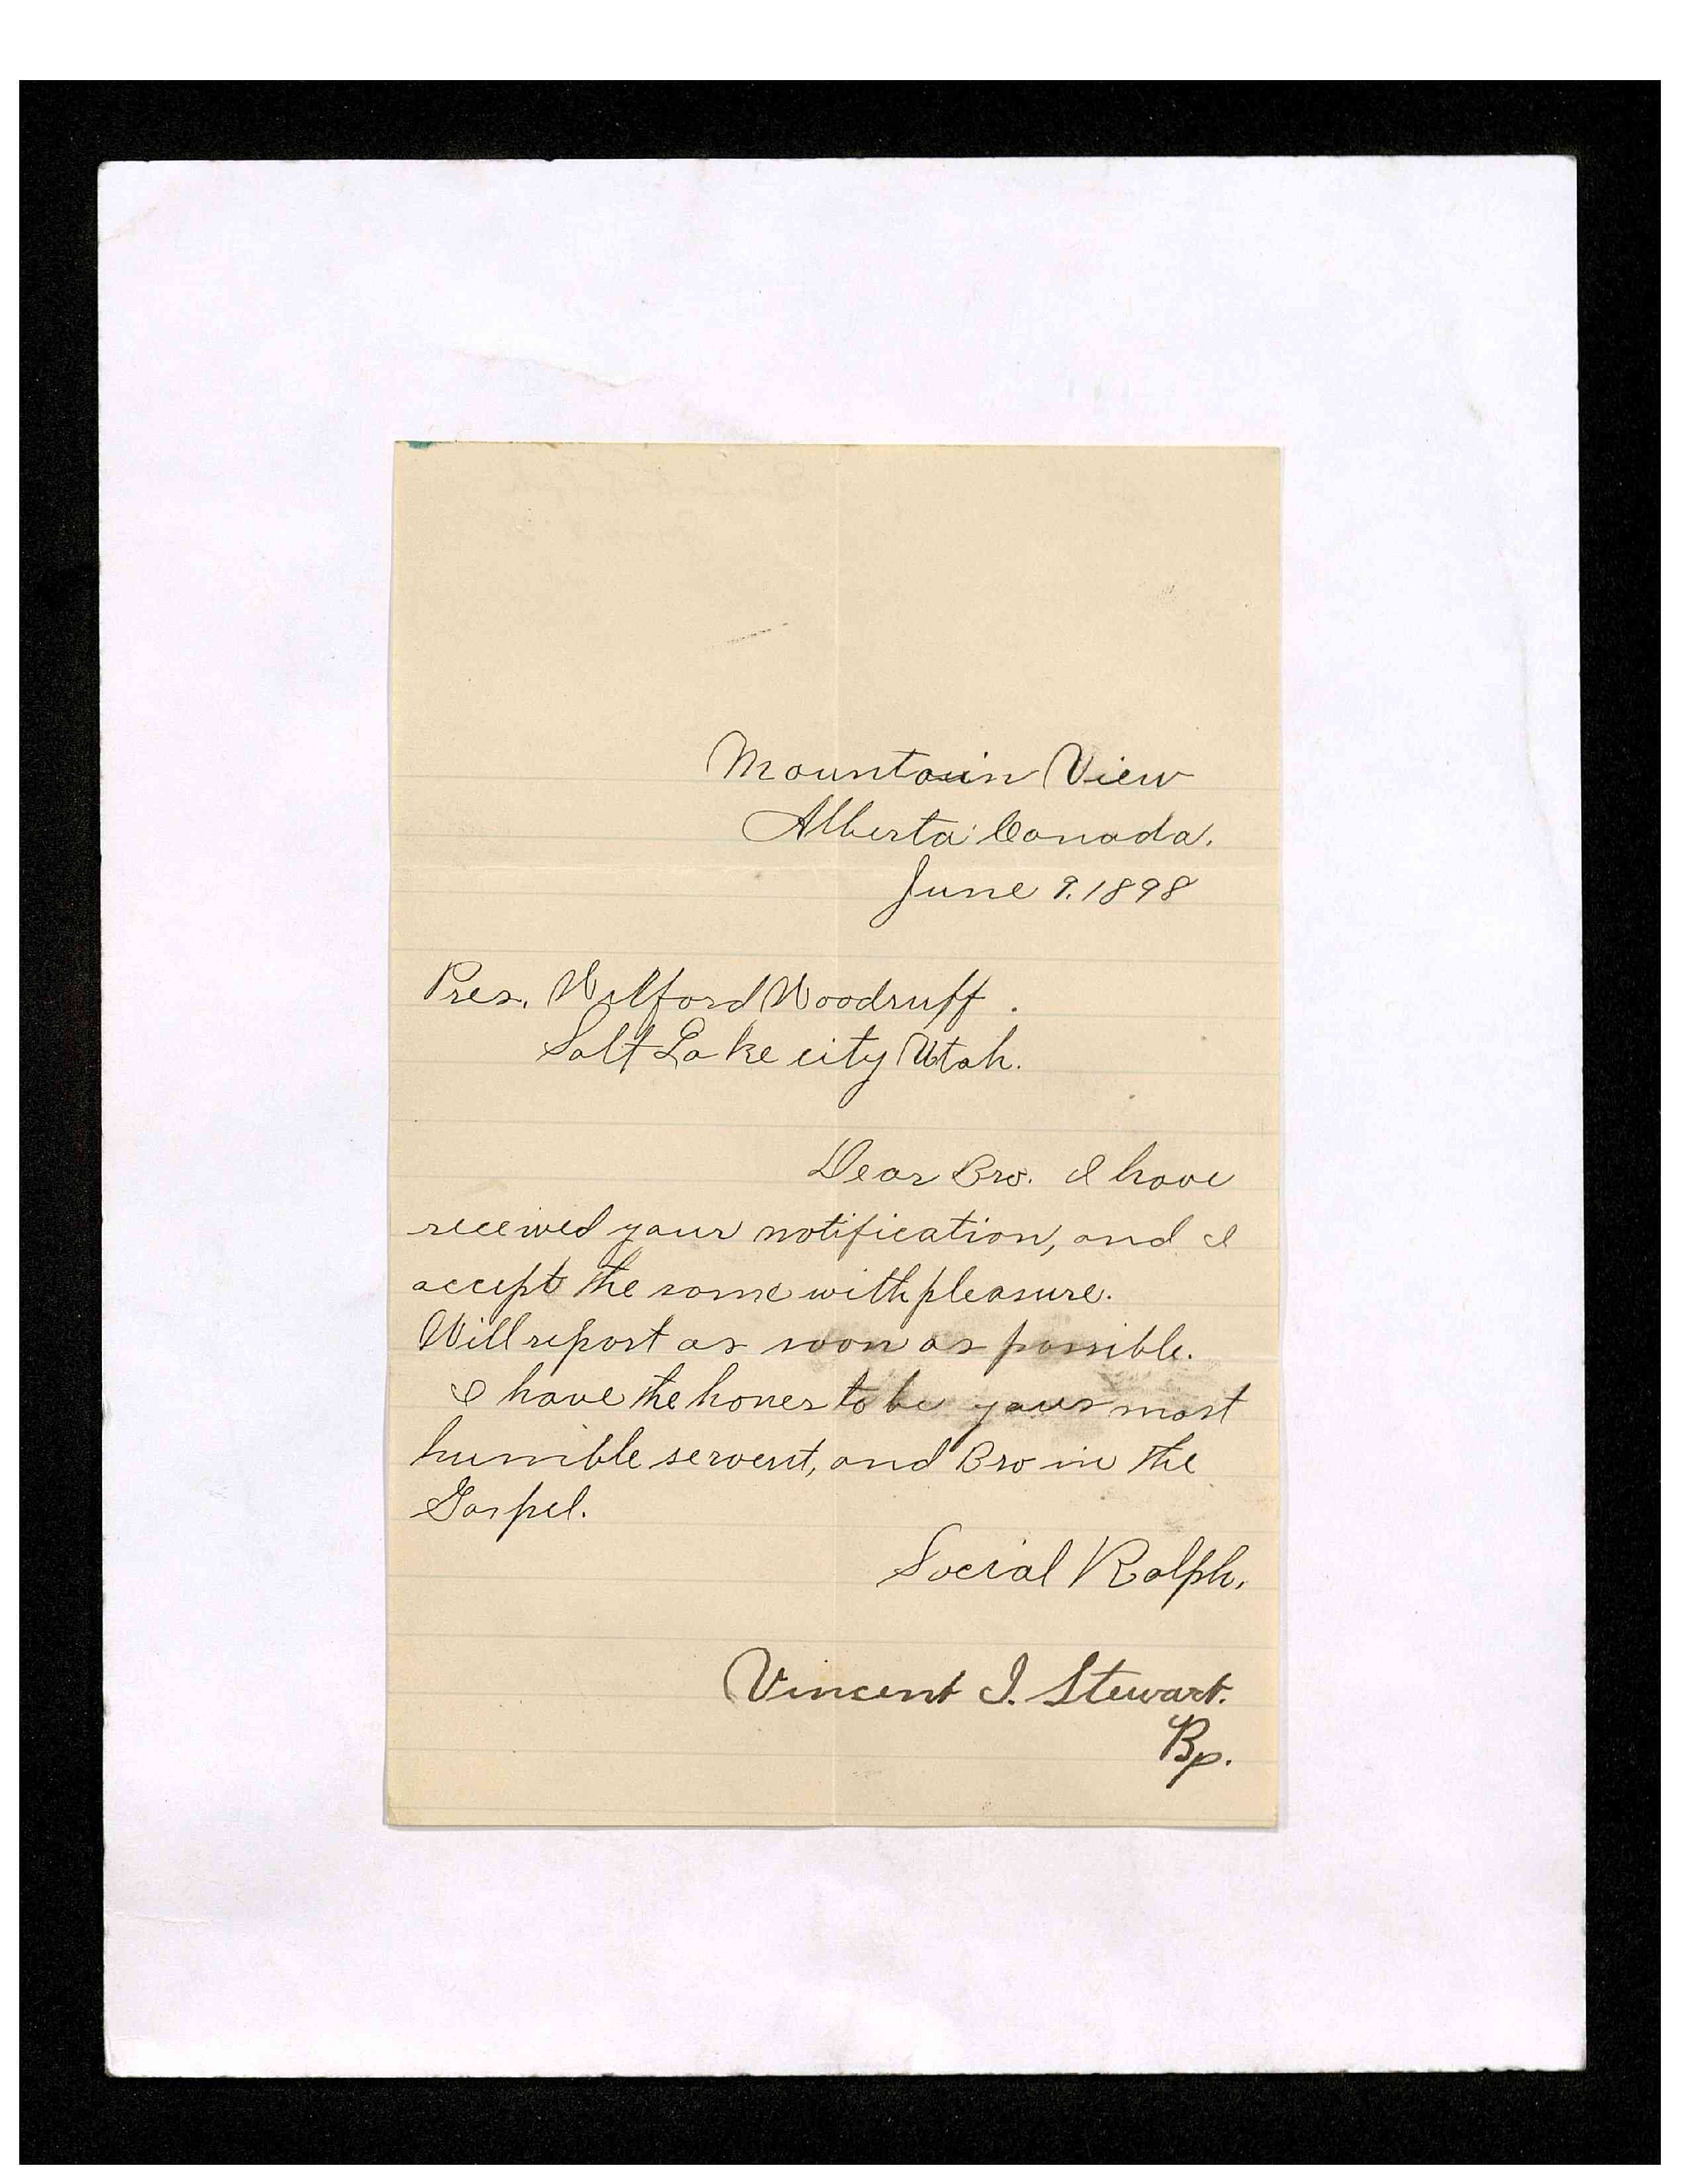 Mountain View
Alberta Canada.
June 9. 1898
Pres. Wilford Woodruff.
Salt Lake city Utah.
Dear Bro. I have
received your notification, and I
accept the same with pleasure.
Will report as soon as possible.
I have the honer to be your most
humble servent, and Bro in the
Gospel.
Social Rolph.
Vincent I. Stewart.
Bp.